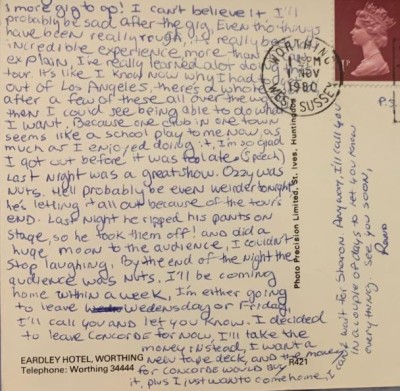 1 more gig to go! I can't believe it, I'll
probably be sad after the gig. Even tho things
have been really rough, it's really been an
incredible experience, more than I can
explain, I've really learned alot on
tour. It's like I know now why I had to get
out of Los Angeles, there's a whole
after a few of these all over the wo
then I could see being able to do what
I want, because one club in one town
seems like a school play to me now, as
much as I enjoyed doing it, I'm so glad
I got out before it was too late. (speech)
Last night was a great show. Ozzy was
nuts. He'll probably be even weirder tonight
he's letting it all out because of the tour's
end. Last night he ripped his pants on
stage, so he took them off! and did a
huge moon to the audience, I couldn't
stop laughing. By the end of the night the
audience was nuts. I'll be coming
home within a week, I'm either going
to leave Wedensday or Friday,
I'll call you and let you know. I decided
to leave Concorde for now, I'll take the
money instead, I want a
new tape deck, and the money
for Concorde would buy
it, plus I just want to come home, I
can't wait for Sharon Anyway, I'll call you
in a couple of days to let you know
everything see you soon,
WORTHING
PM
NOV
1980
WEST SUSSEX
P
Photo Precision Limited, St. Ives, Huntingdon
EARDLEY HOTEL, WORTHING
Telephone: Worthing 34444
R421